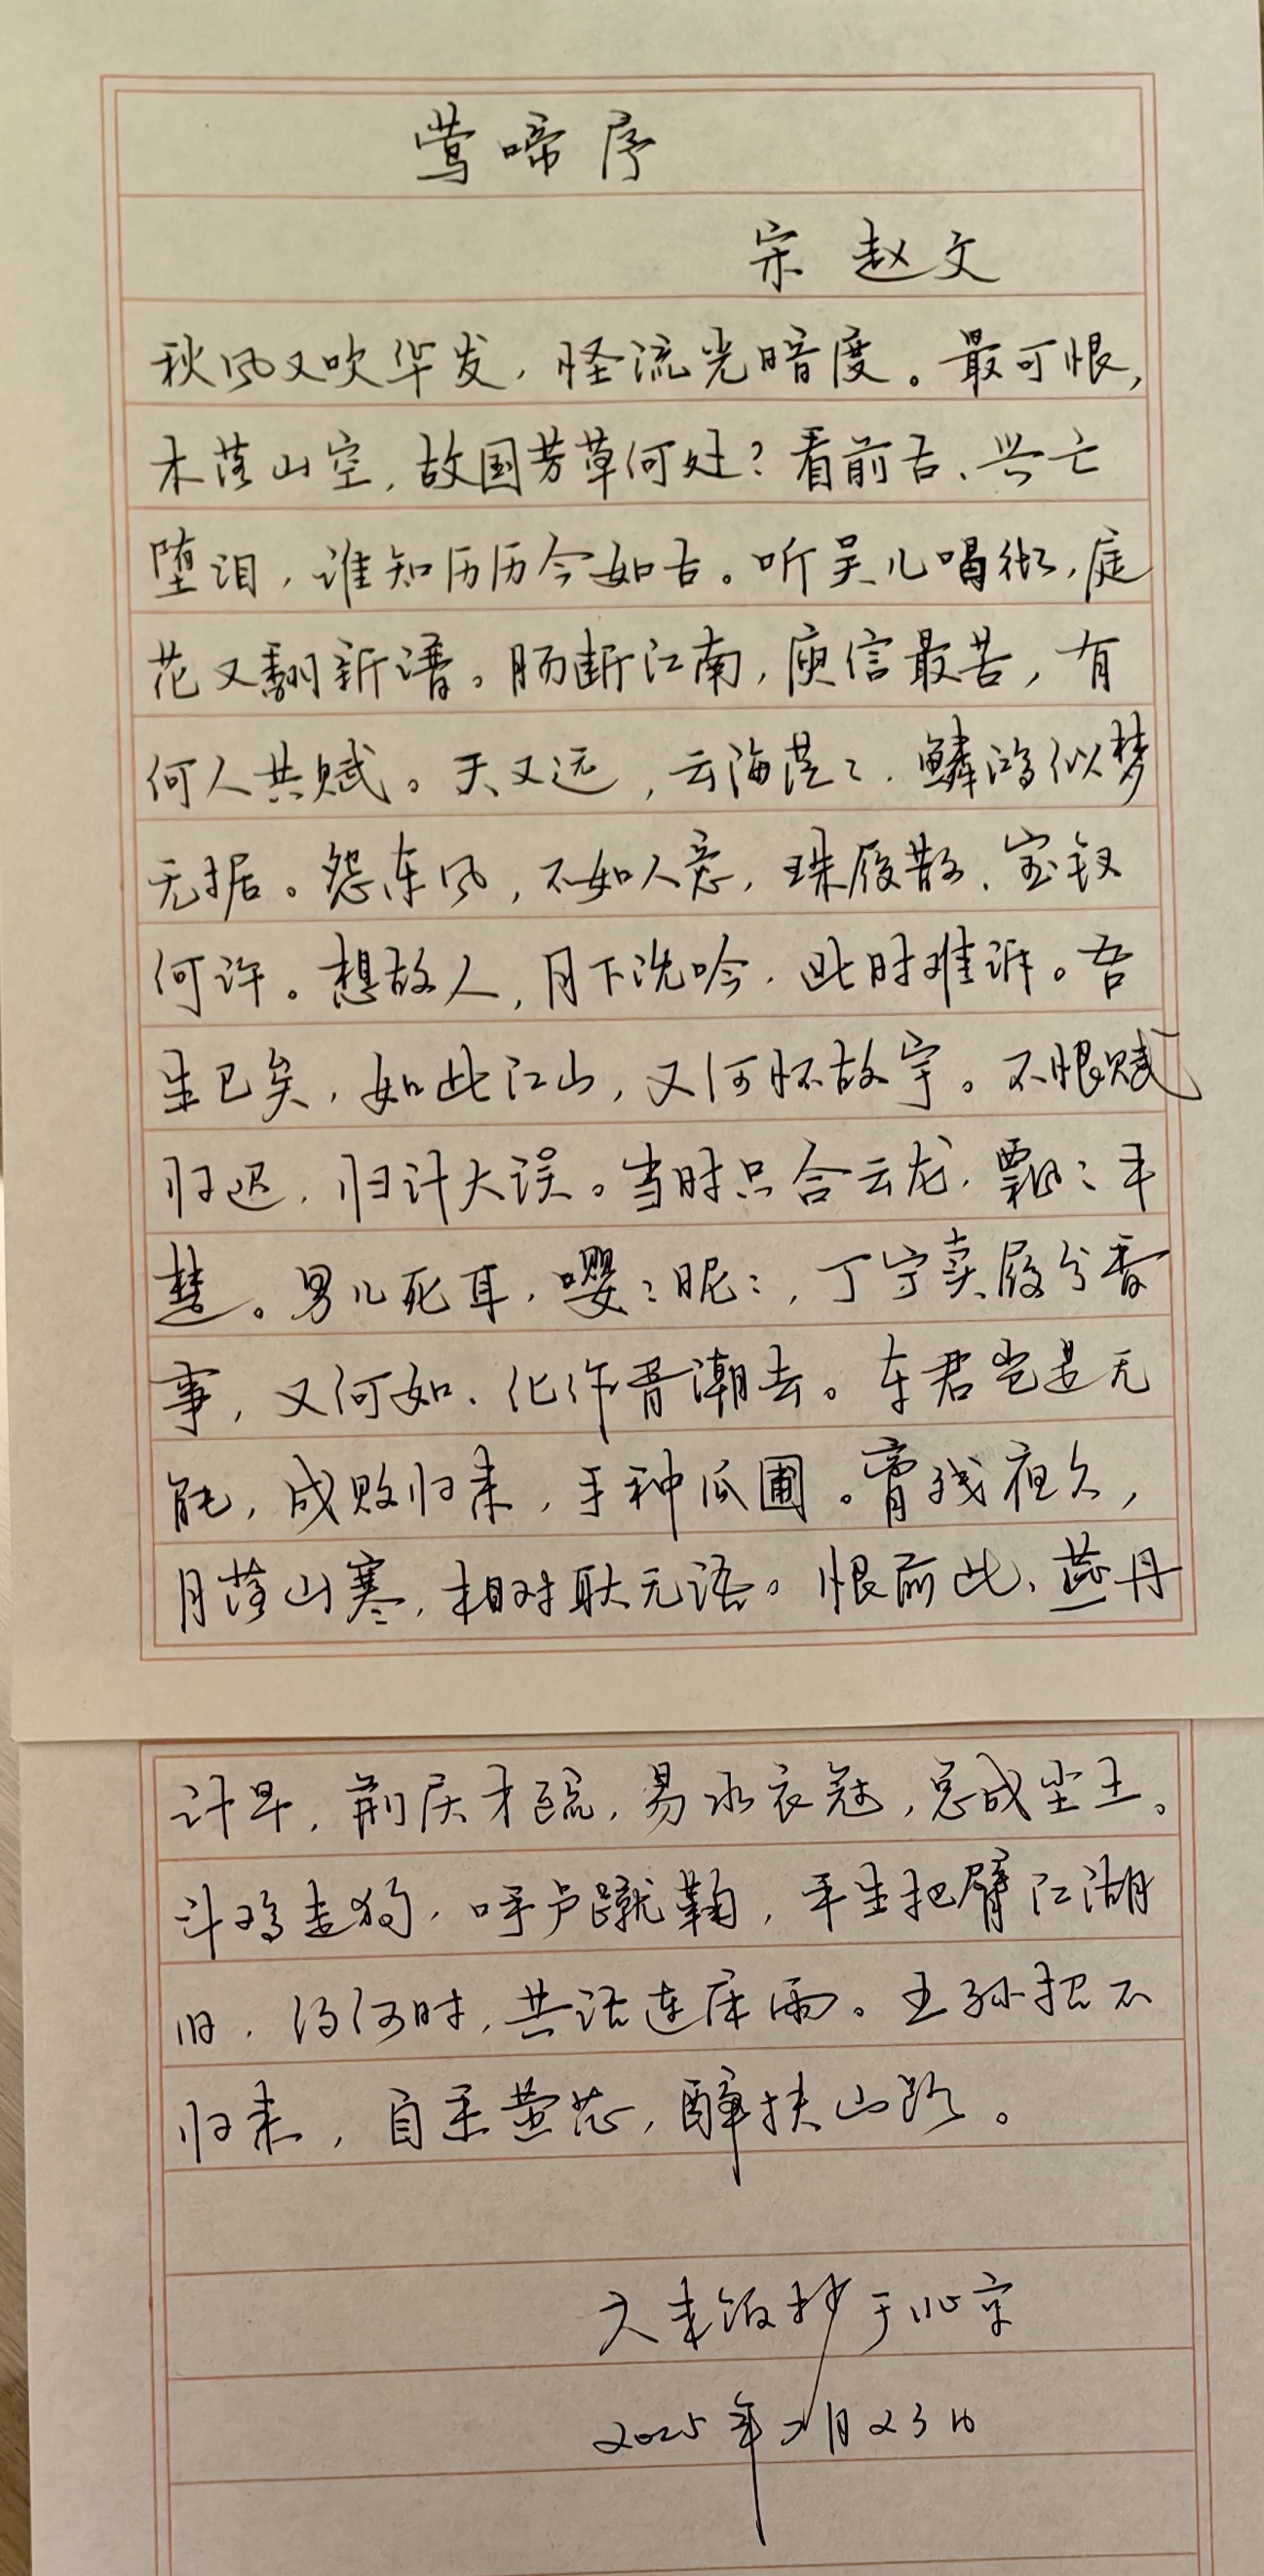 莺啼序
宋 赵文
秋风又吹华发，怪流光暗度。最可恨，
木落山空，故国芳草何处？看前古、兴亡
堕泪，谁知历历今如古。听吴儿唱彻，庭
花又翻新谱。肠断江南，庾信最苦，有
何人共赋。天又远，云海茫々，鳞鸿似梦
无据。怨东风，不如人意，珠履散、宝钗
何许。想故人，月下沈吟，此时难诉。吾
生已矣，如此江山，又何怀故宇。不恨赋
归迟，归计大误。当时只合云龙，飘々平
楚。男儿死耳，嘤々昵々，丁宁卖履分香
事，又何如、化作胥潮去。东君岂是无
能，成败归来，手种瓜圃。膏残夜久，
月落山寒，相对耿无语。恨前此、燕丹
计早，荆庆才疏，易水衣冠，总成尘土。
斗鸡走狗，呼卢蹴鞠，平生把臂江湖
旧，约何时，共话连床雨。王孙招不
归来，自采黄花，醉扶山路。
抄于北京
2025年2月23日